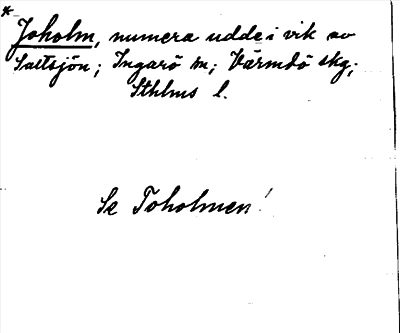 * Joholm, numera udde i vik av
Saltsjön; Ingarö sn; Värmdö skg;
Sthlms l.
Se Toholmen!